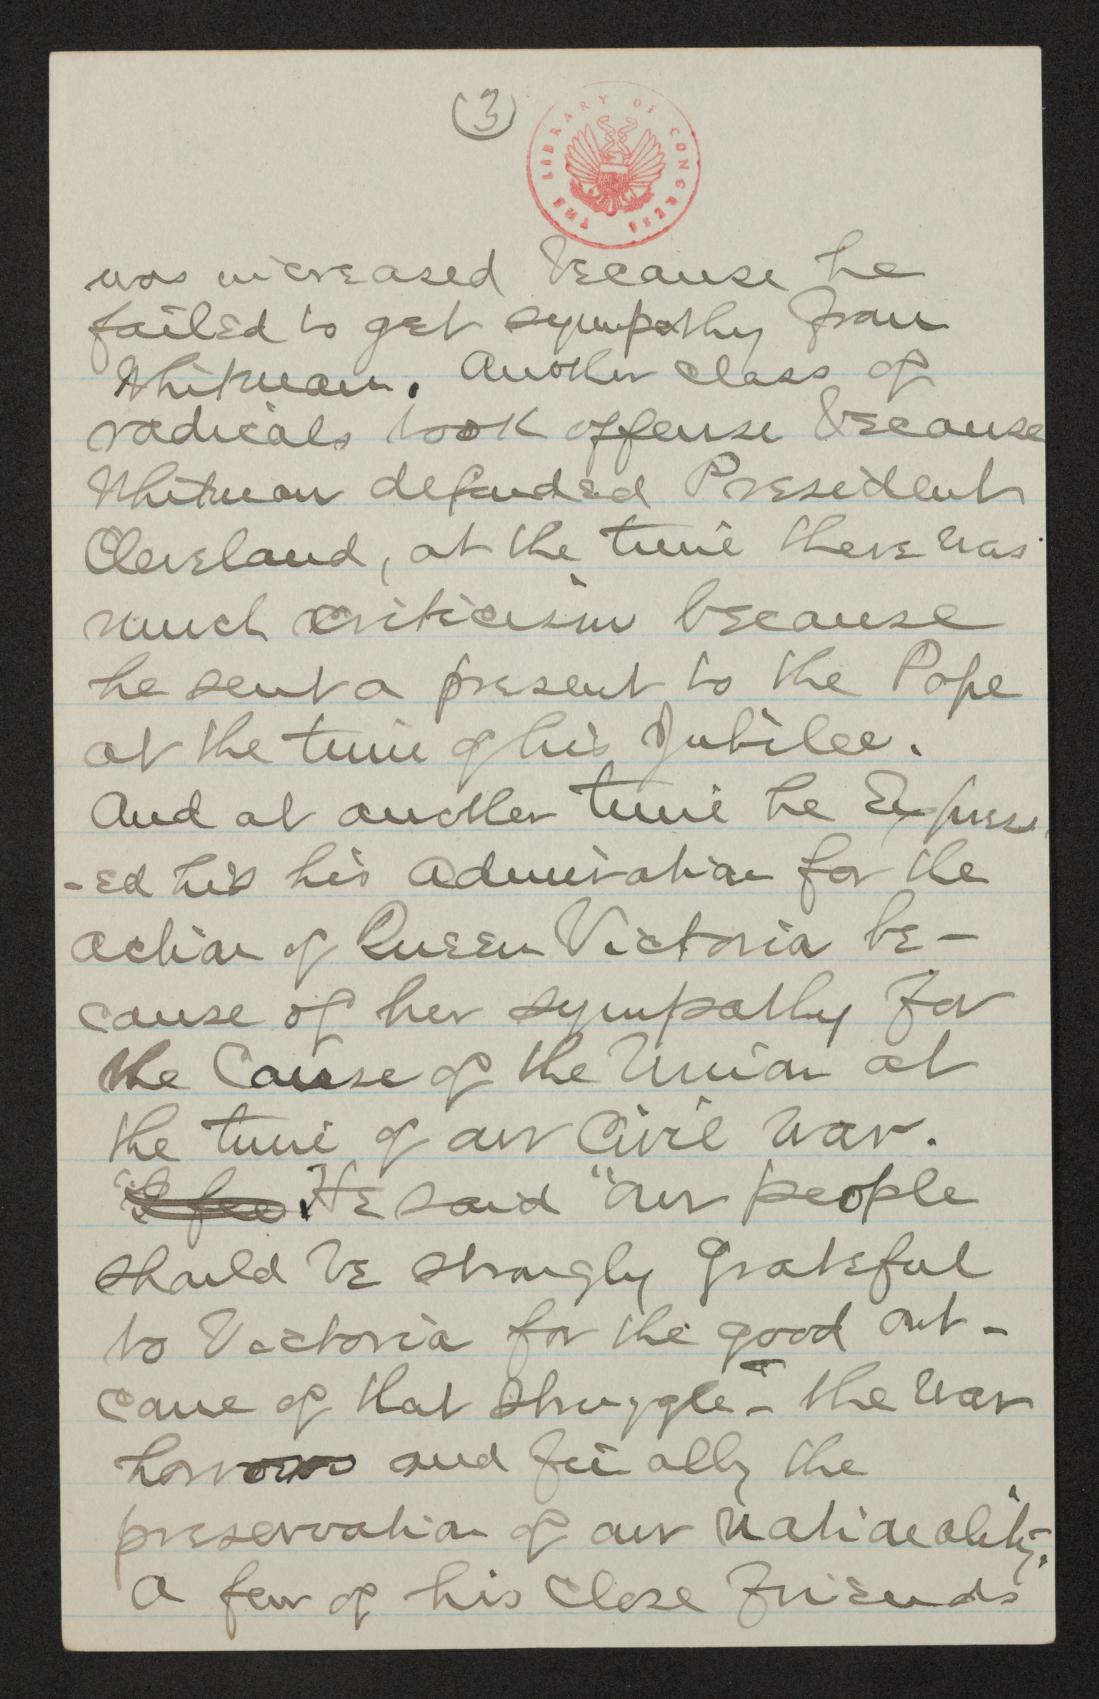 (3)
THE LIBRARY OF CONGRESS
was increased because he
failed to get sympathy from
Whitman. Another class of
radicals took offense because
Whitman defended President
Cleveland, at the time there was
much criticism because
he sent a present to the Pope
at the time of his Jubilee.
And at another time he Express
-ed his his admiration for the
action of Queen Victoria be-
cause of her sympathy for
the Cause of the Union at
the time of our Civil War.
He said "our people
should be strongly grateful
to Victoria for the good out-
come of that struggle - the war
horrors and finally the
preservation of our nationality".
A few of his close Friends